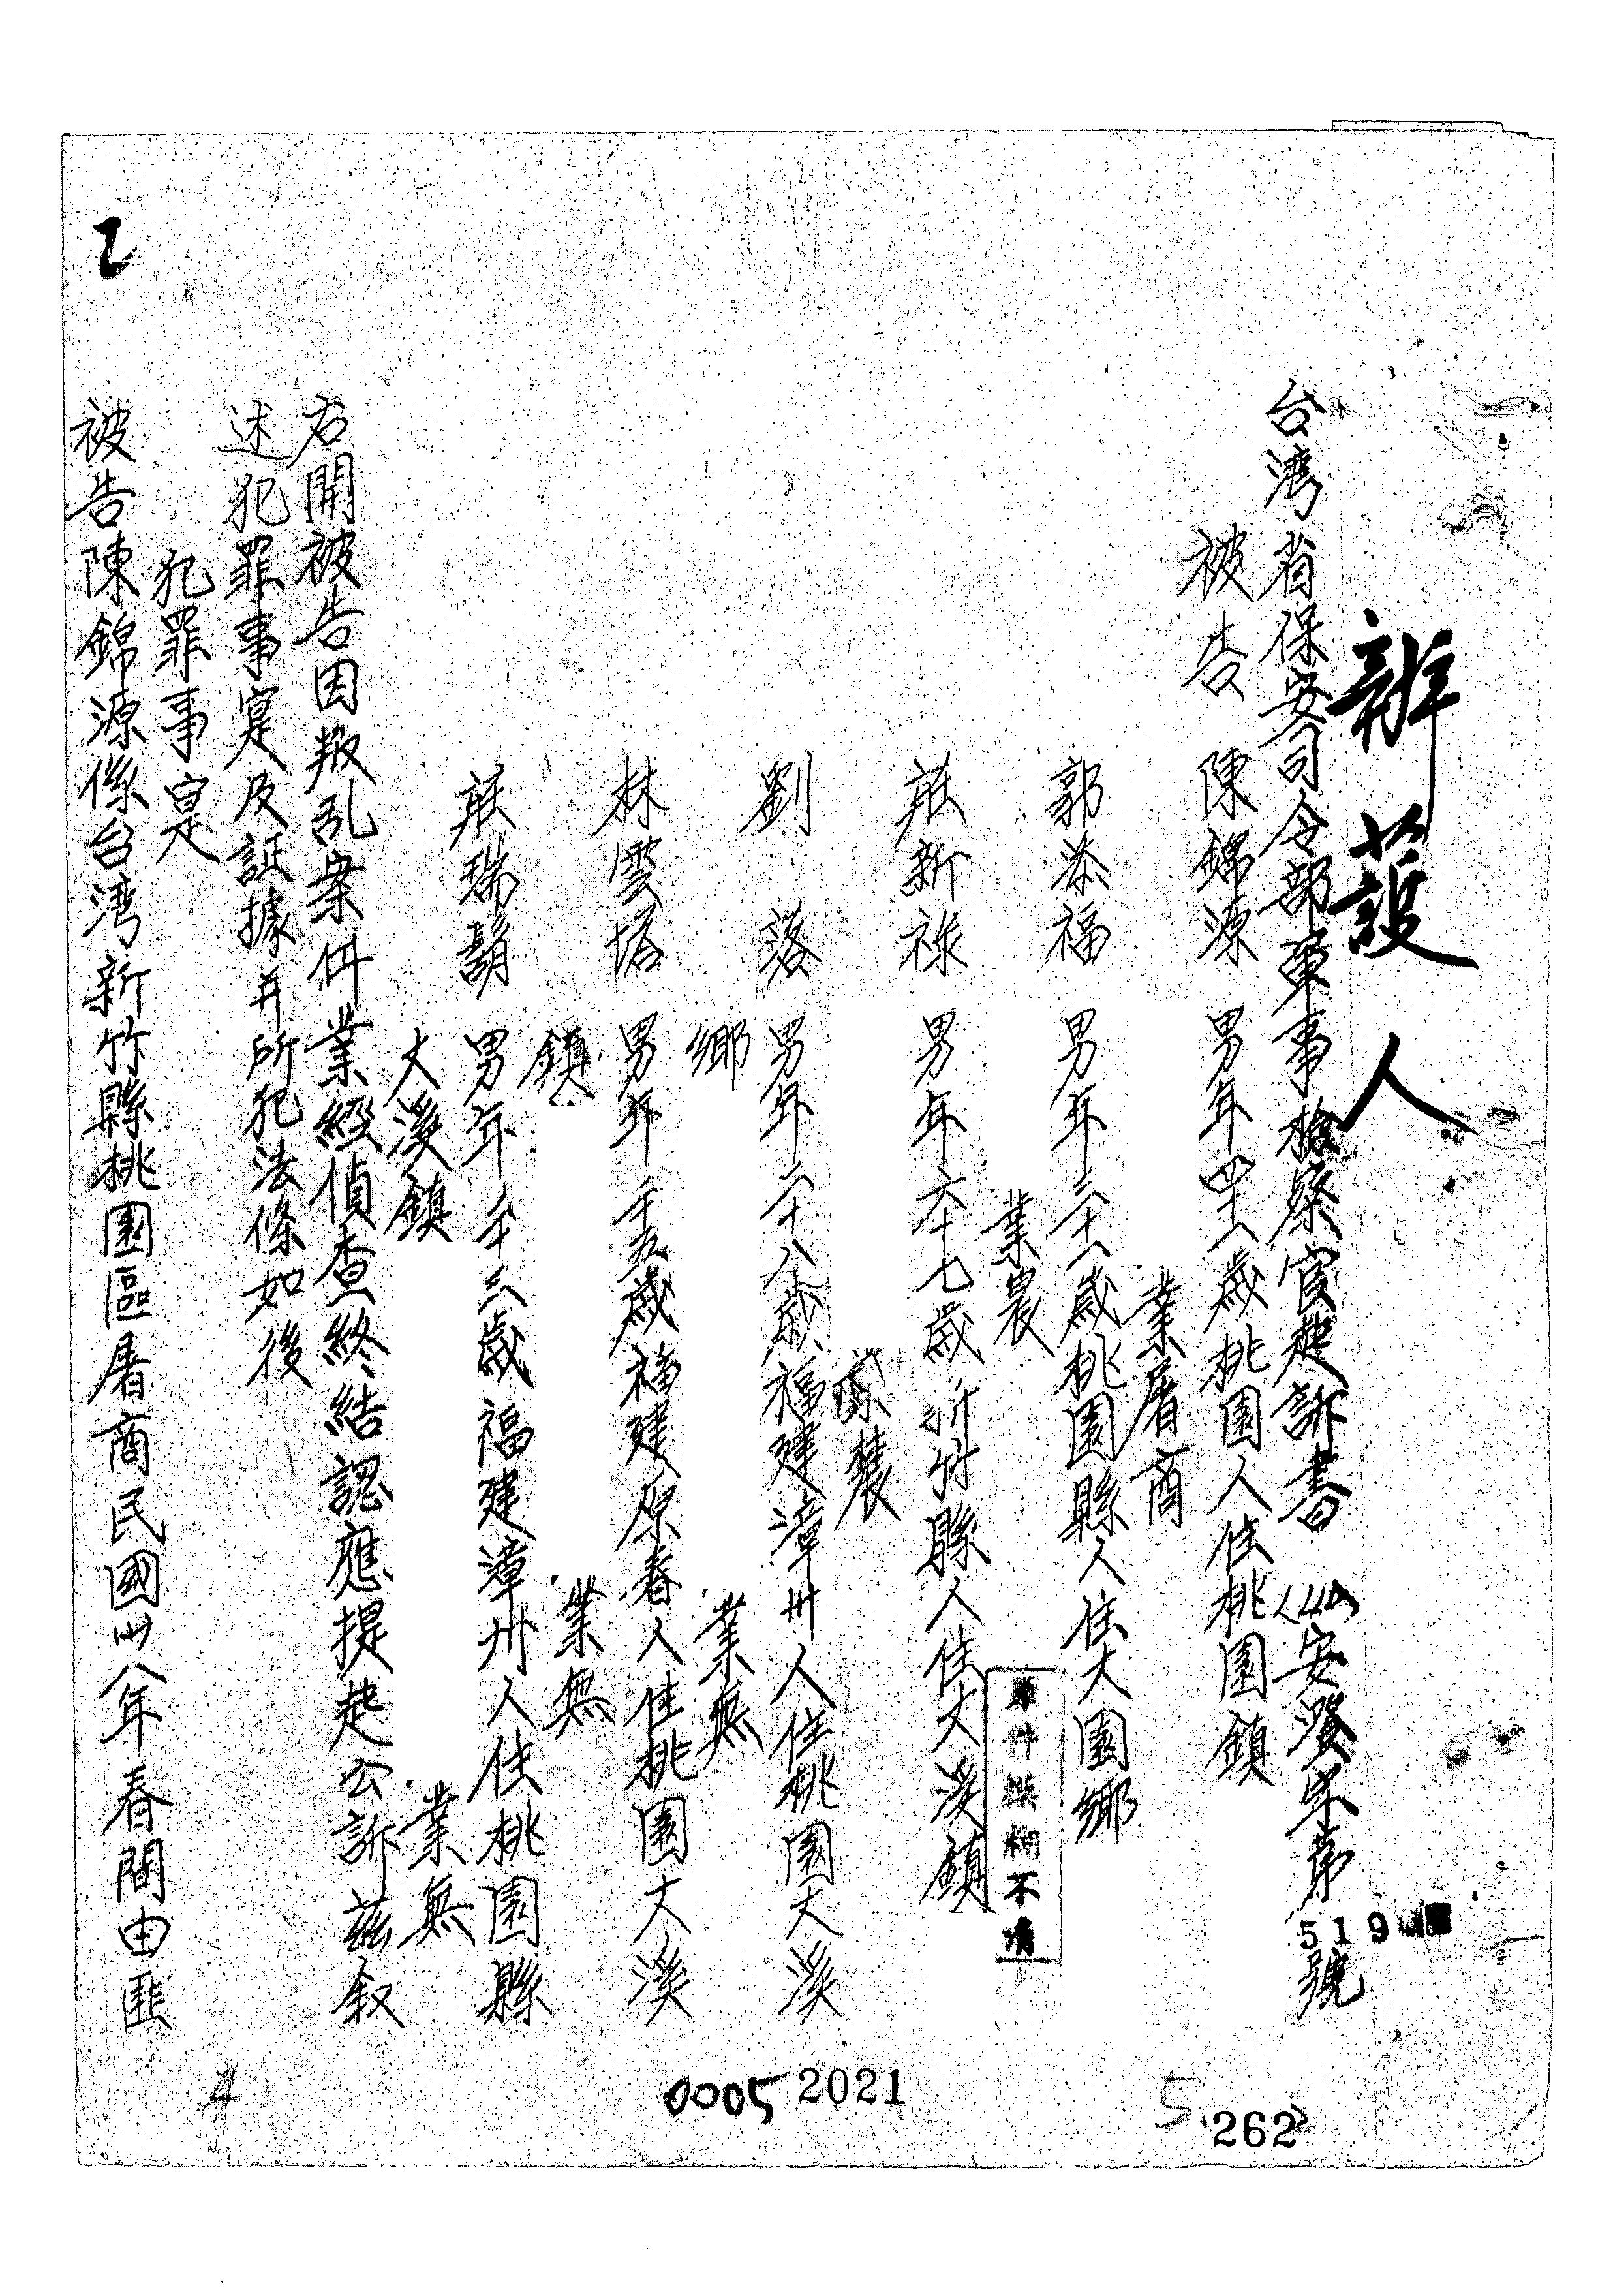 辦護人
台湾省保安司令部軍事檢察官起訴書 安潔字第519號
被告 陳錦源 男年四十一歲桃園人住桃園鎮
業屠商
郭添福 男年三十一歲桃園縣人住大園鄉
業農
莊新祿 男年六十七歲新竹縣人住大溪鎮
業農
劉 落 男年二十八歲福建漳州人住桃園大溪
鄉 業無
林雲塔 男年二十五歲福建原春人住桃園大溪
鎮 業無
莊瑞鬍 男年二十三歲福建漳州人住桃園縣
大溪鎮 業無
右開被告因叛乱案件業經偵查終結認應提起公訴茲叙
述犯罪事寔及証據并所犯法條如後
犯罪事寔
被告陳錦源係台湾新竹縣桃園區屠商民國卅八年春間由匪
乙
原件模糊不清
4
0005 2021
5
262